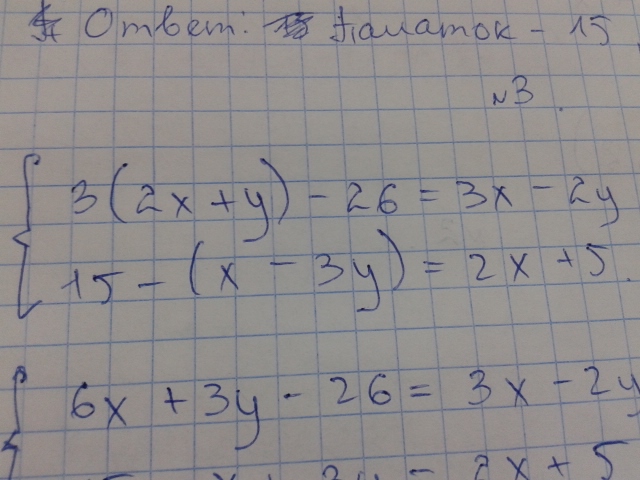 Ответ: Палаток - 15
№3.
3(2x+y) - 26 = 3x - 2y
15 - (x - 3y) = 2x + 5.
6x + 3y - 26 = 3x - 2y
2x + 5